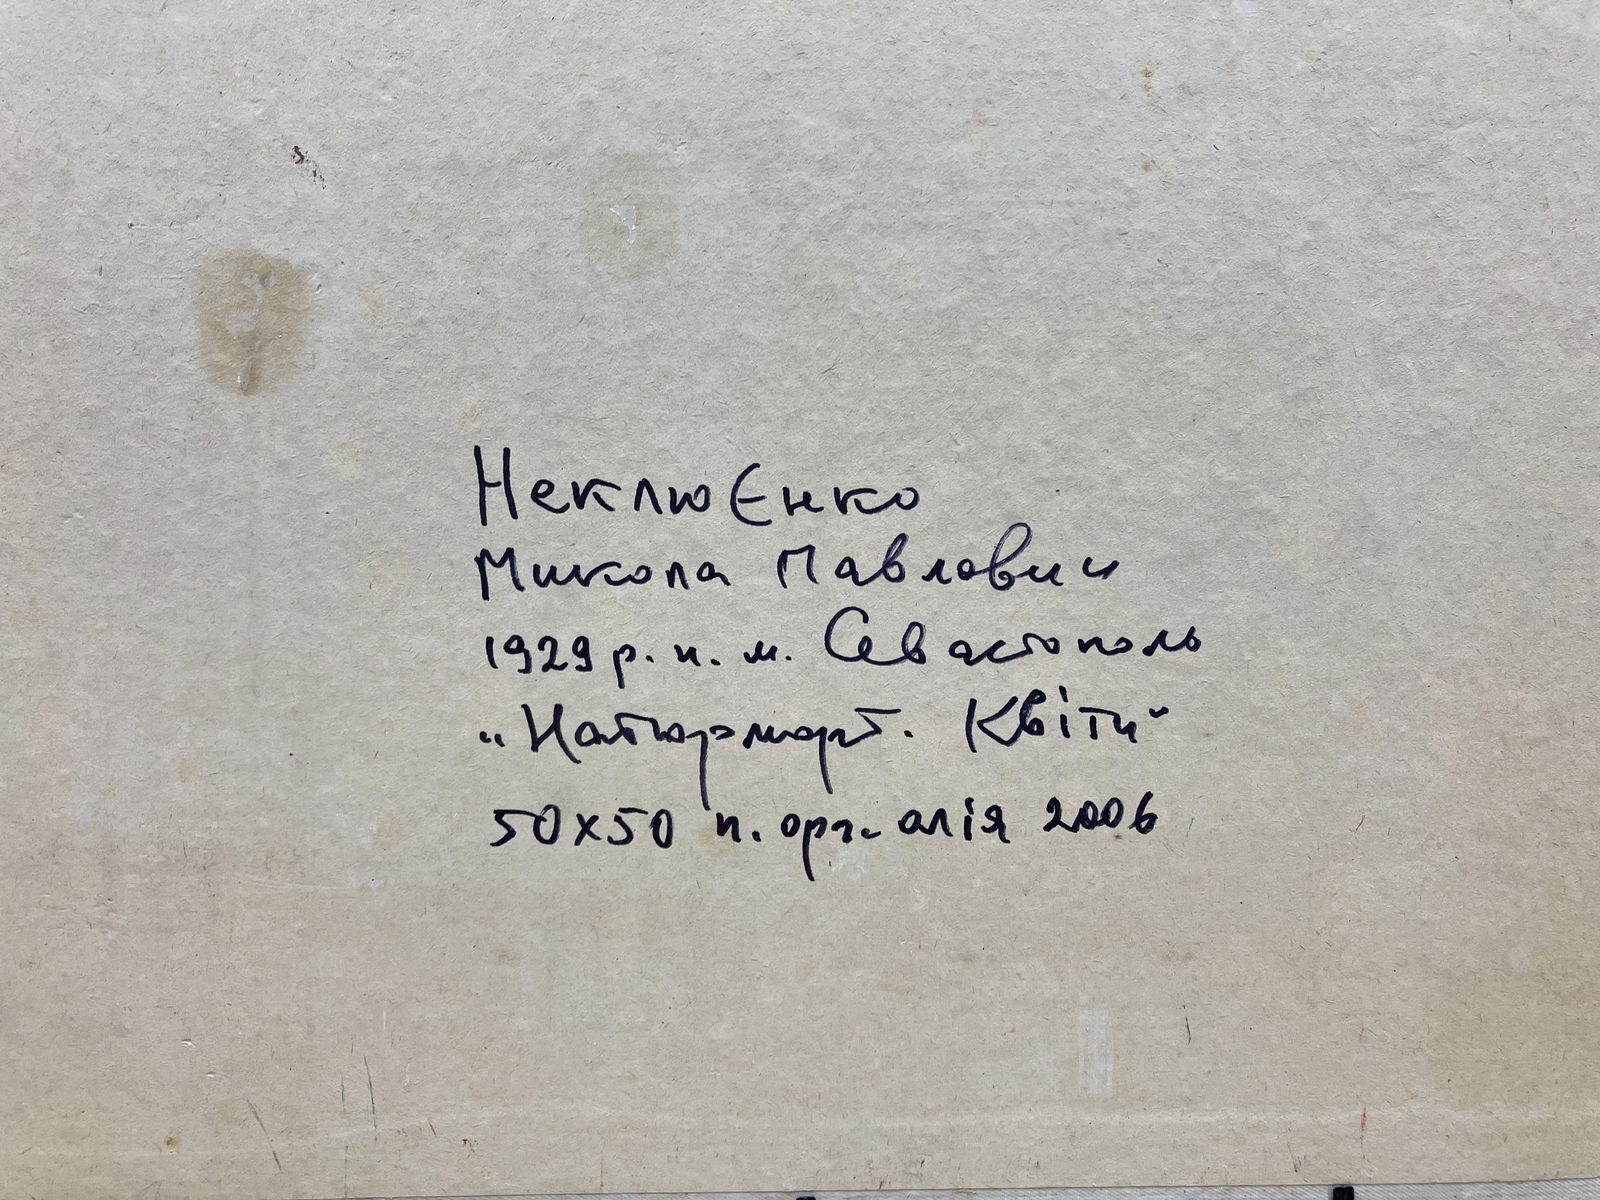 НеклюЄнко
Микола Павлович
1929 р. н. м. Севастополь
„Натюрморт. Квіти"
50х50 п. орг. олія 2006